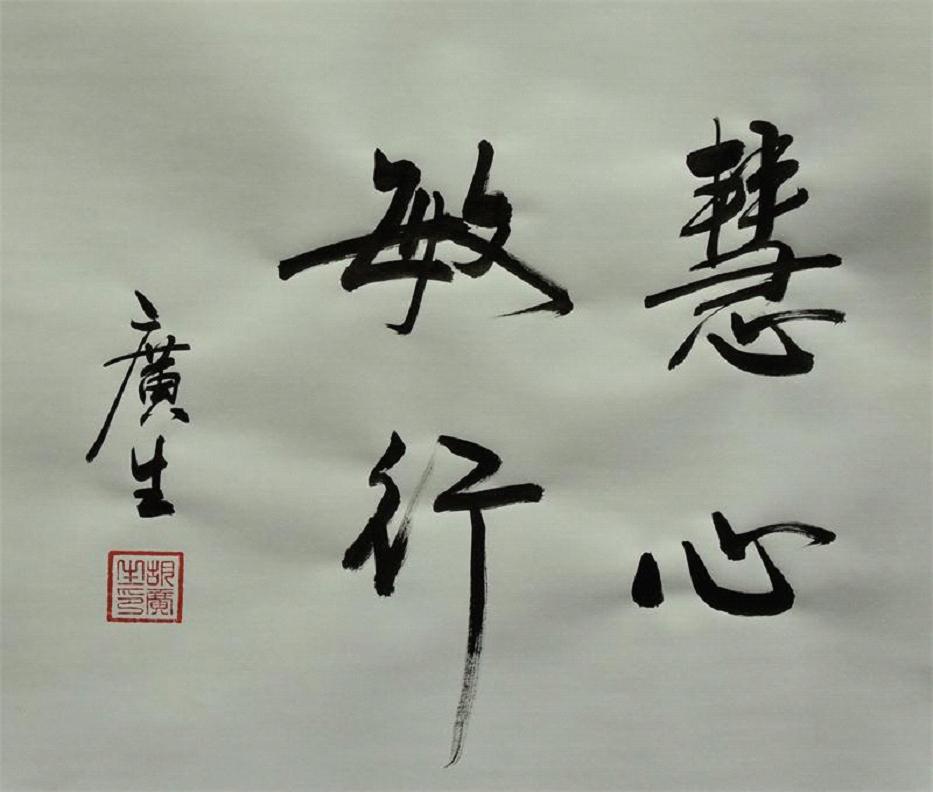 慧心
敏行
廣生
胡廣生印